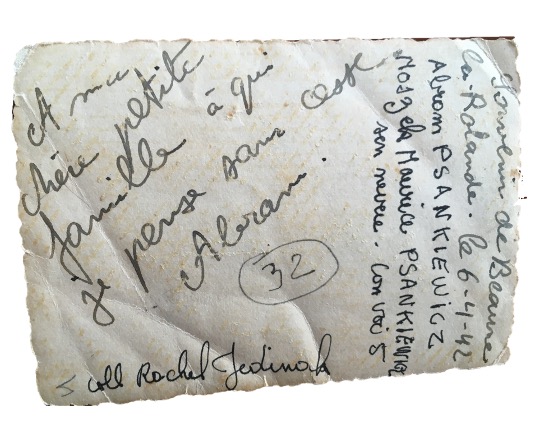 A ma
chère petite
famille à qui
je pense sans cesse
Abram.
Souvenir de Beaune
la Rolande. le 6-4-42
Abram PSANKIEWICZ
Maurice PSANKIEWICZ
son neveu. Convoi 5
32
5 coll Rachel Jedinak